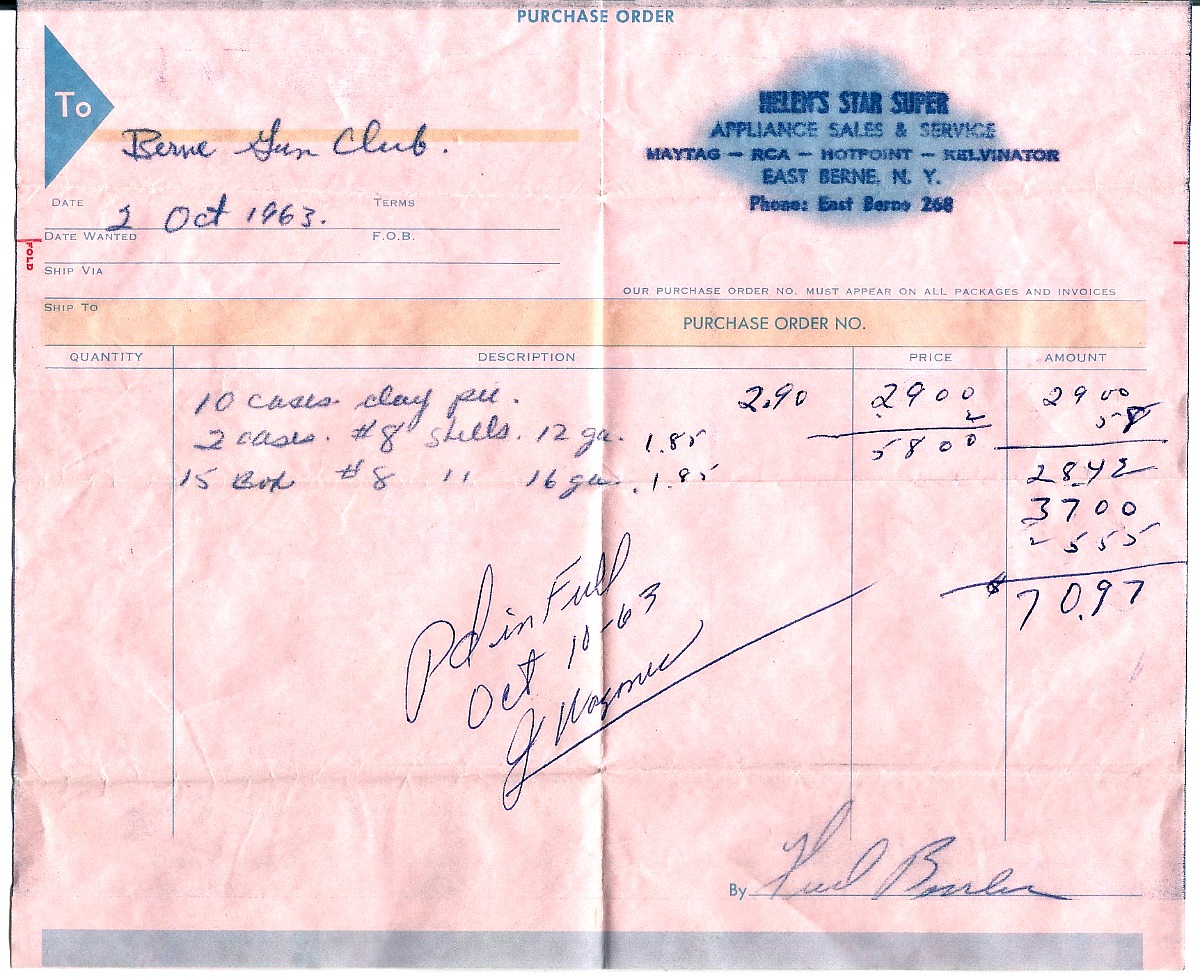 PURCHASE ORDER
To
Berne Gun Club.
HELEN'S STAR SUPER
APPLIANCE SALES & SERVICE
MAYTAG — RCA — HOTPOINT — KELVINATOR
EAST BERNE, N. Y.
Phone: East Berne 268
DATE 2 Oct 1963. TERMS
DATE WANTED F.O.B.
FOLD
SHIP VIA
OUR PURCHASE ORDER NO. MUST APPEAR ON ALL PACKAGES AND INVOICES
SHIP TO
PURCHASE ORDER NO.
QUANTITY DESCRIPTION PRICE AMOUNT
10 cases clay pie. 2.90 2900 2900
2 cases. #8 shells. 12 ga. 1.85 2 58
5800
2842
15 Box #8 " 16 ga. 1.85
3700
2555
$70.97
Pd in Full
Oct 10-63
By